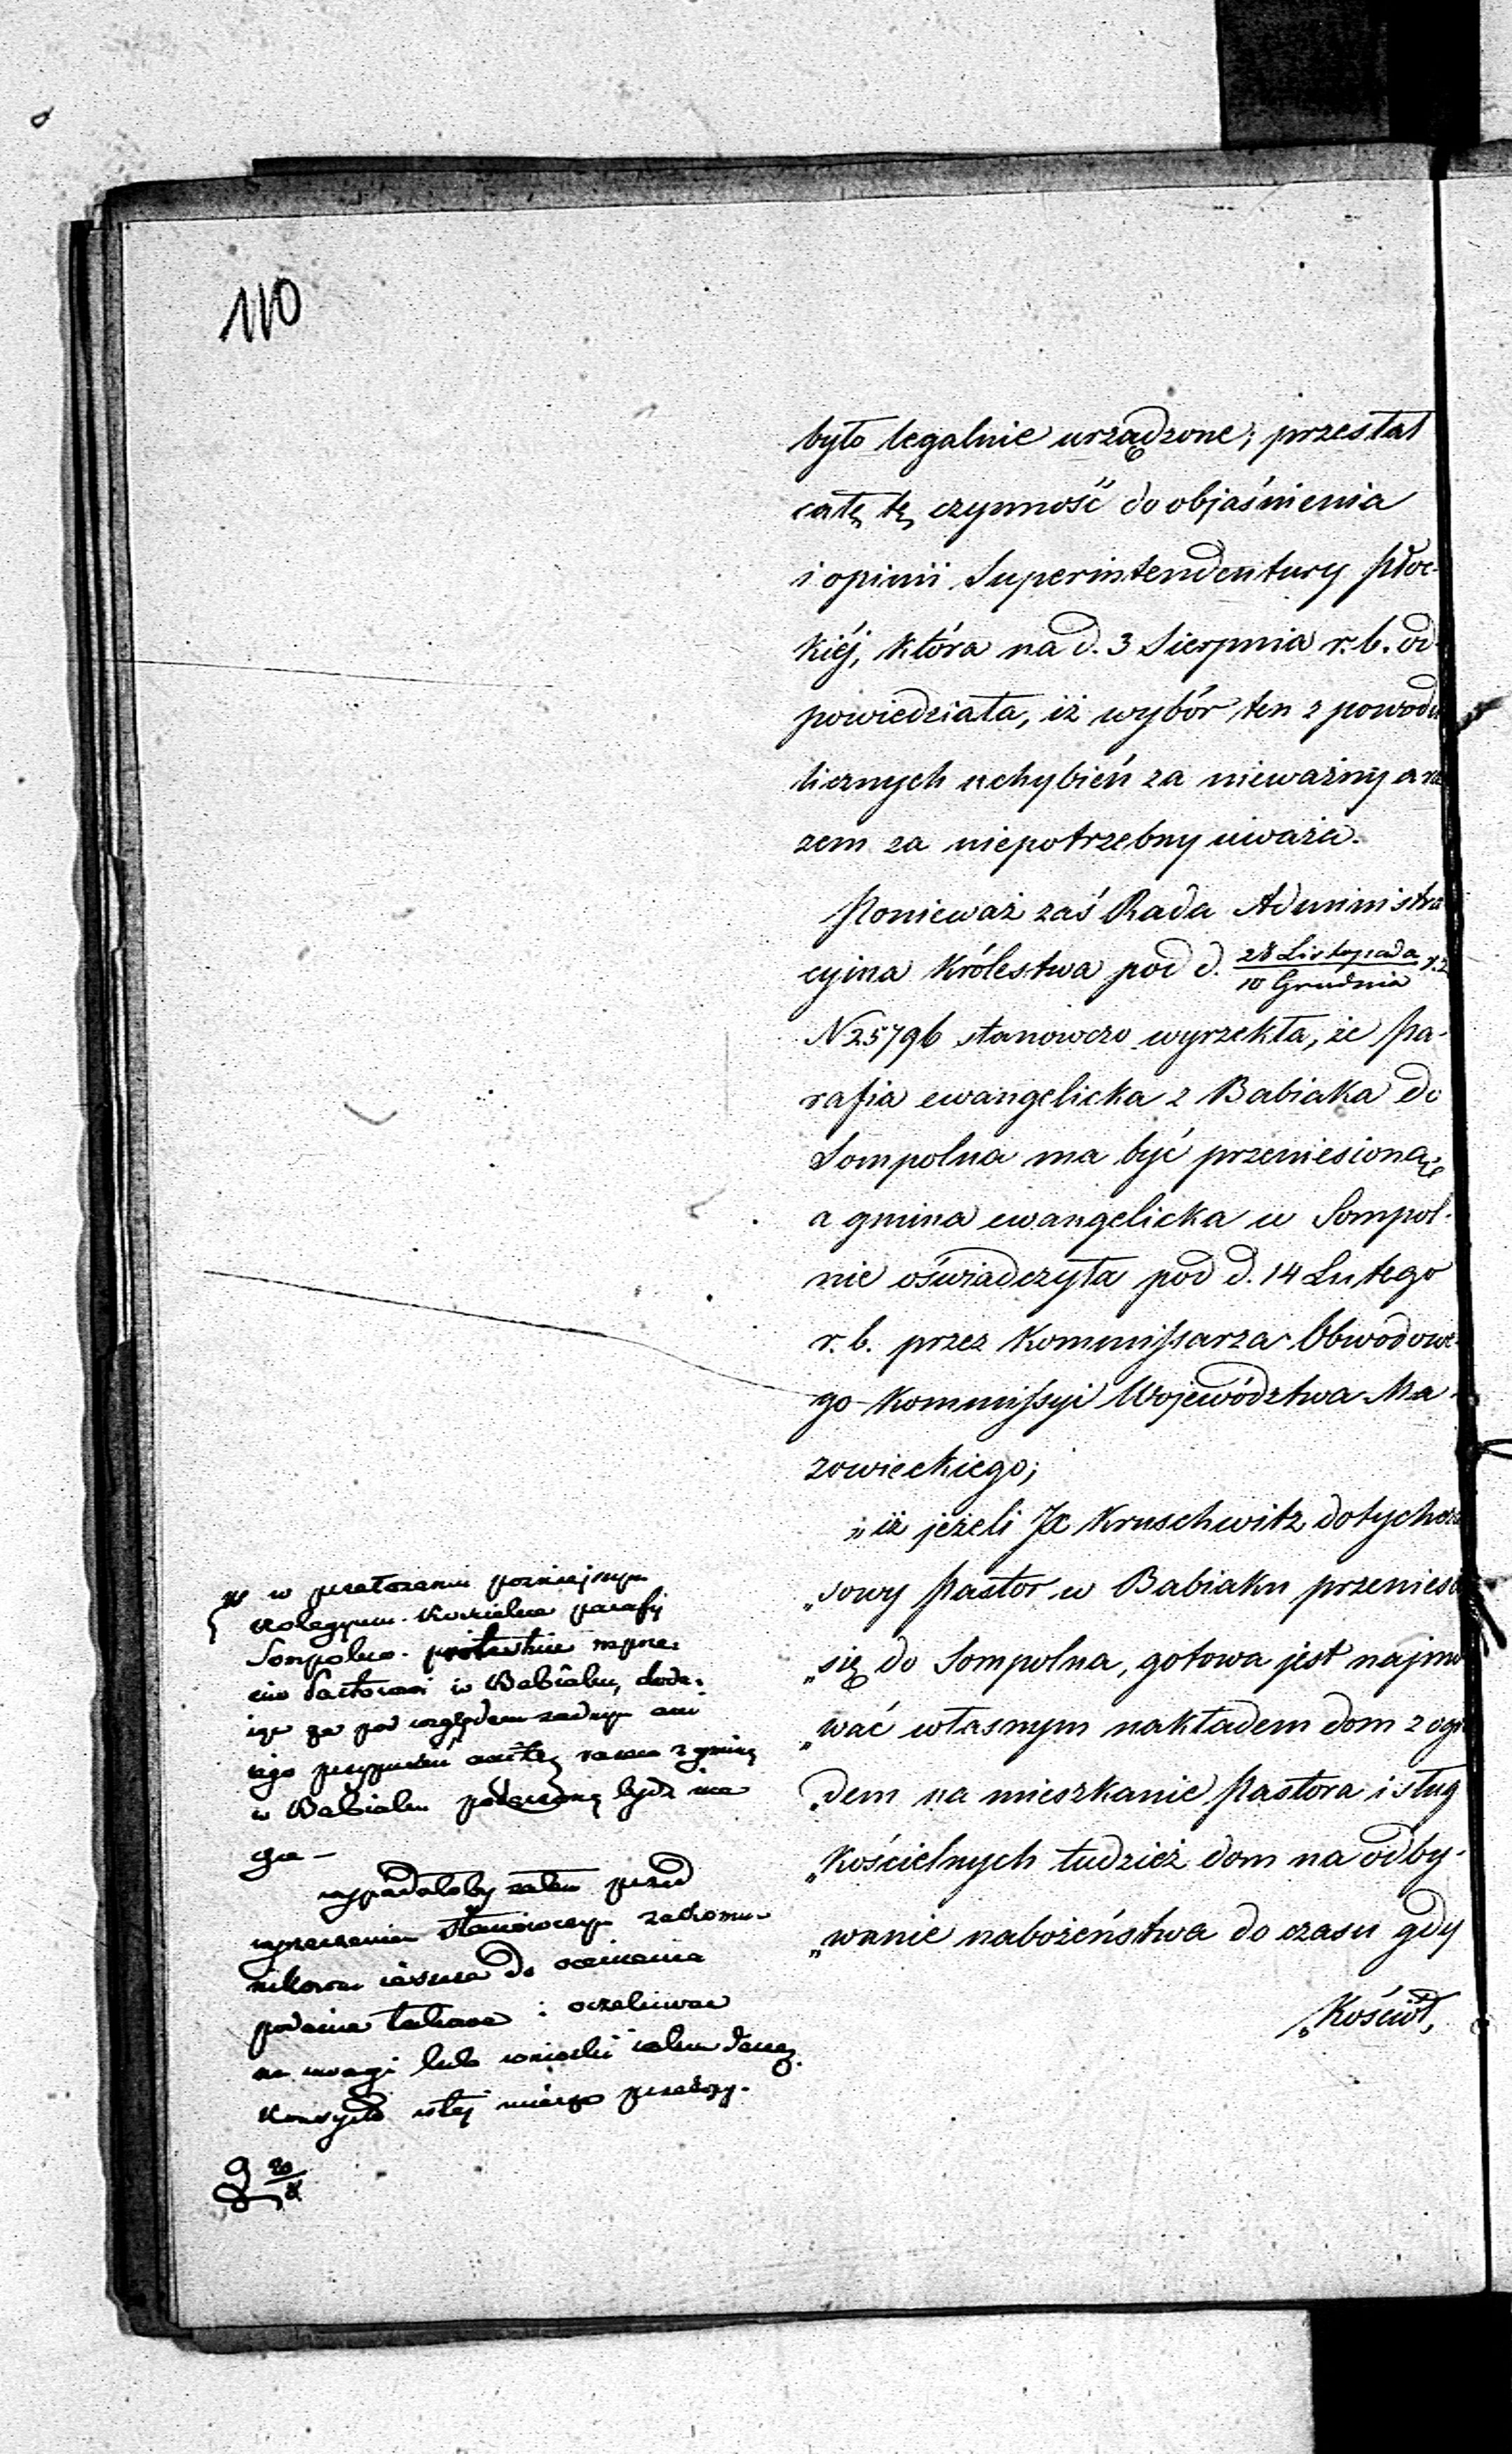 110
było legalnie urządzone; przesłał
całę tę czynność do objaśnienia
i opinii Superintendentury Płoc-
kiéj, która na d. 3 Sierpnia r. b. od-
powiedziała, iż wybór ten z powodu
licznych uchybień za nieważny a ra
zem za niepotrzebny uważa.
Ponieważ zaś Rada Administra
cyjna Królestwa pod d. 28 Listopada / 10 Grudnia r. z.
N 25796 stanowczo wyrzekła, że Pa-
rafia ewangelicka z Babiaka do
Sompolna ma być przeniesioną,
a gmina ewangelicka w Sompol-
nie oświadczyła pod d. 14 Lutego
r. b. przez Kommissarza Obwodowe-
go Kommissyi Województwa Ma-
zowieckiego;
„iż jeżeli JX Kruschwitz dotychcza
„sowy Pastor w Babiaku przenies
„się do Sompolna, gotowa jest najmo
„wać własnym nakładem dom z ogro
„dem na mieszkanie Pastora i sług
„Kościelnych tudzież dom na odby-
„wanie nabożeństwa do czasu gdy
„Kościół,
w poźniejszym
Kollegium Kościelne parafii
Sompolno
Pastorowi w Babiaku,
pod względem żadnym ani
razem z gminą
w Babiaku połączoną bydź nie
wypadałoby zatem przed
stanowczym zakomu-
do ocenienia
podanie i oczekiwać
uwagi lub wnioski
20/X